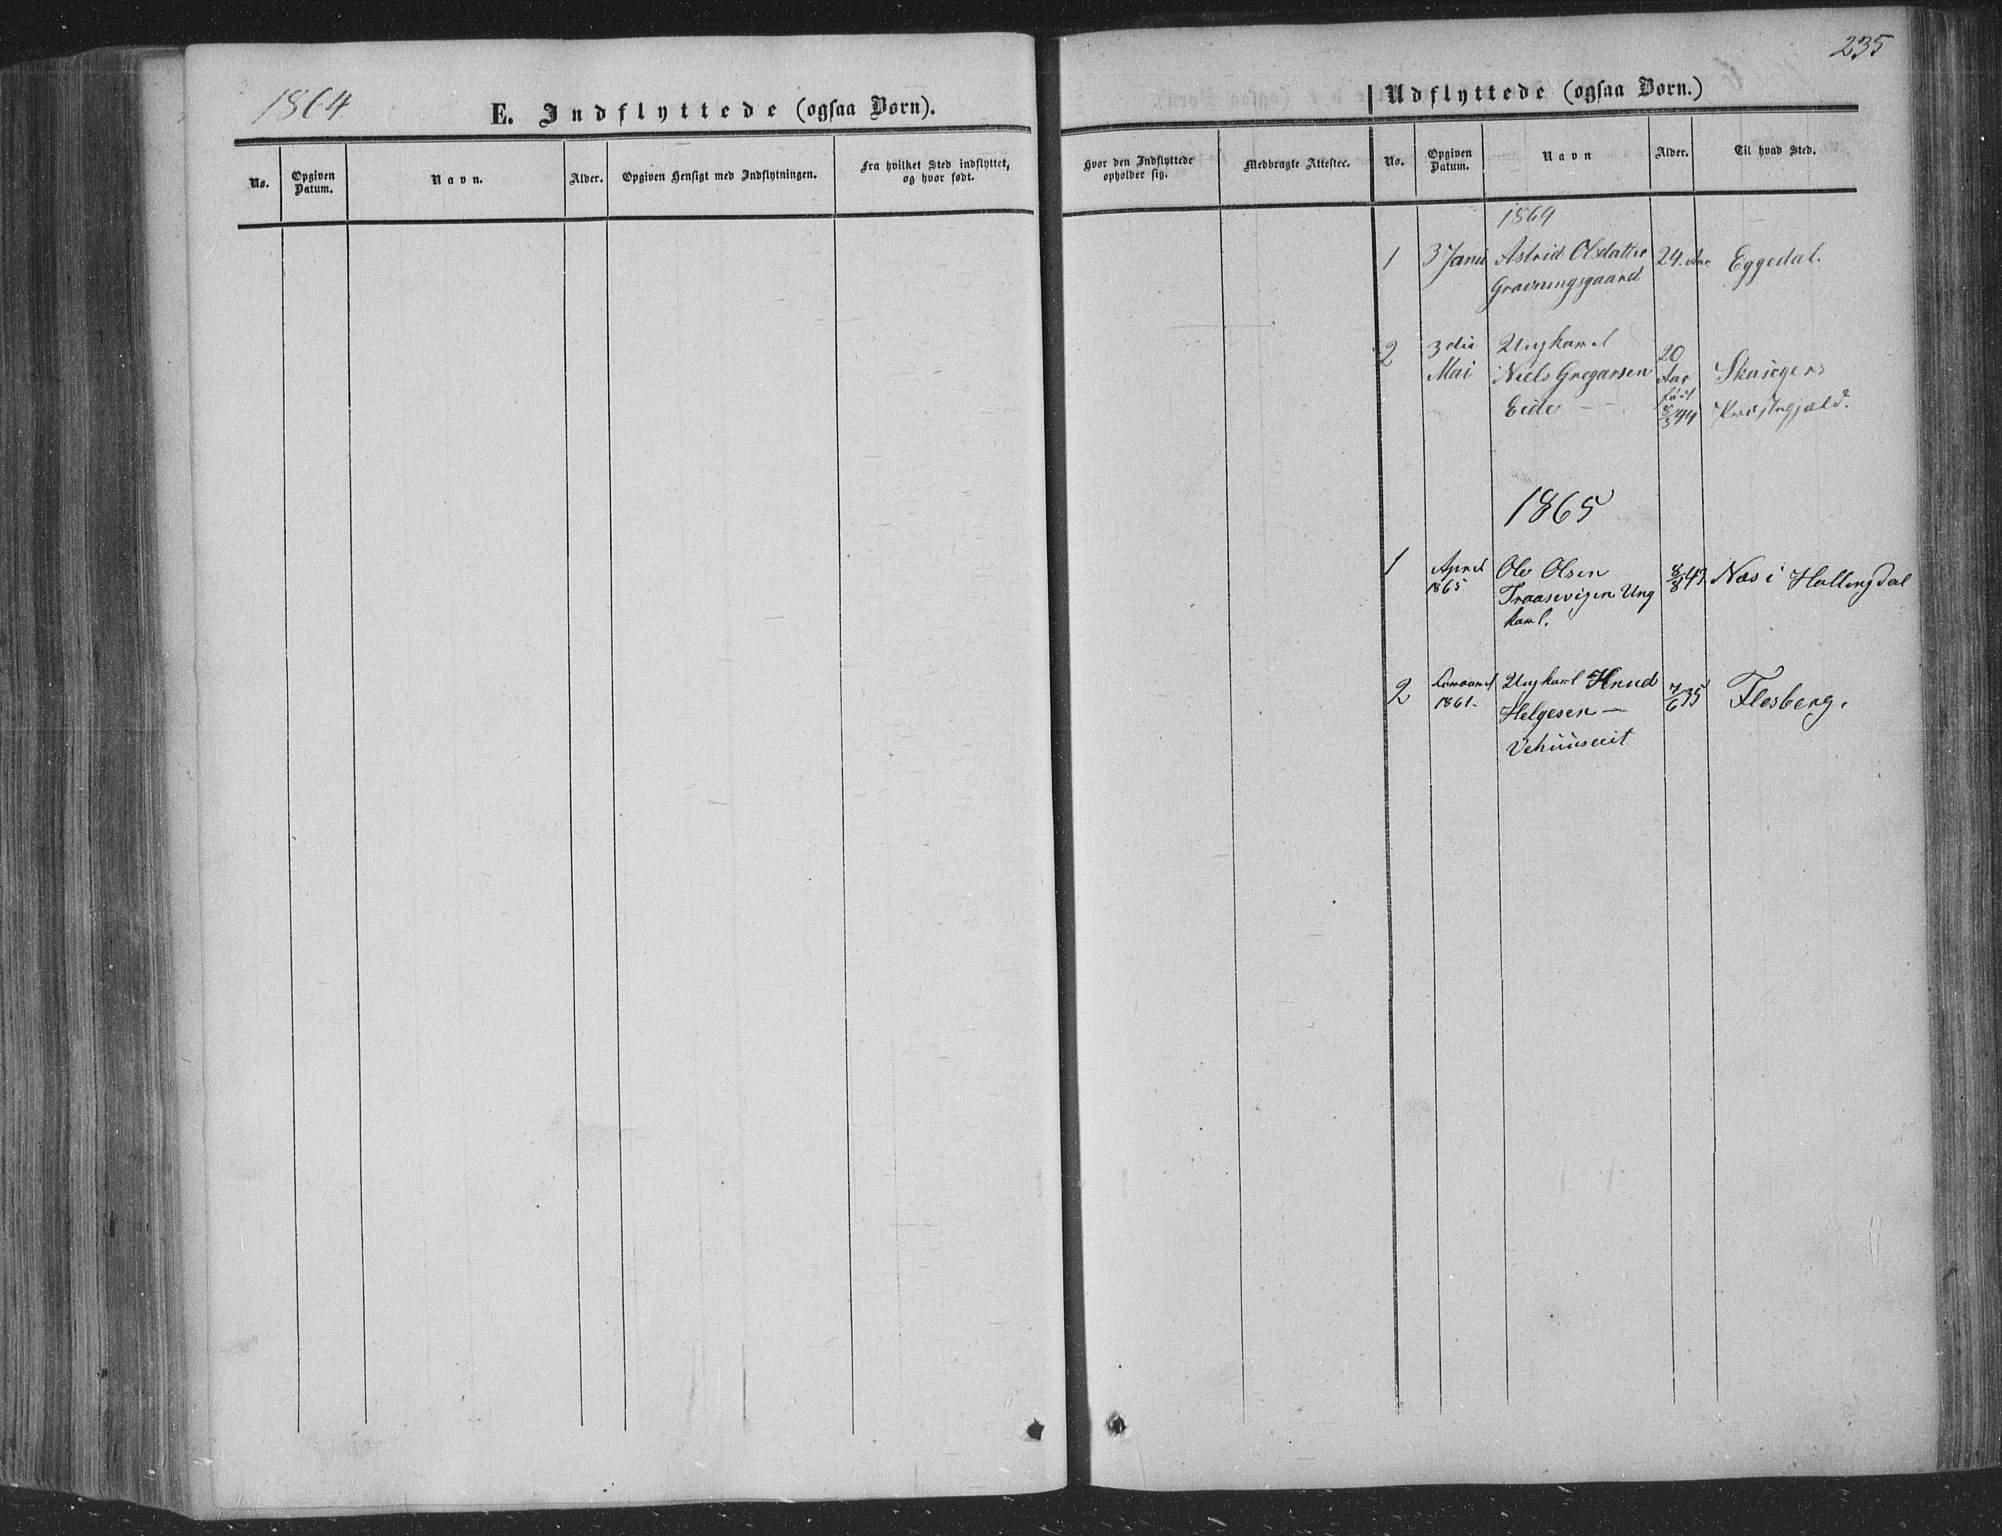 1864
E. Indflyttede (ogsaa Børn).
No.
Opgiven
Datum.
Navn.
Alder.
Opgiven Hensigt med Indflytningen.
Fra hvilket Sted indflyttet,
og hvor født.
235
Udflyttede (ogsaa Børn.)
Hvor den Indflyttede
opholder sig.
Medbragte Attester.
No.
Opgiven
Datum.
Navn
Alder.
Til hvad Sted.
1864
1 3 Janu Astrid Olsdatter 24. Aar Eggedal.
Gravningsgaard
2 3die Ungkarl 20
Mai Niels Gregarsen Aar
født
Eide — 44 Præstegjæld.
1865
1 April Ole Olsen 8/8 43 Næs i Hallingdal
1865 Traasevigen Ung
karl.
2 Ungkarl Knud 7/6 35 Flesberg.
1861 Helgesen —